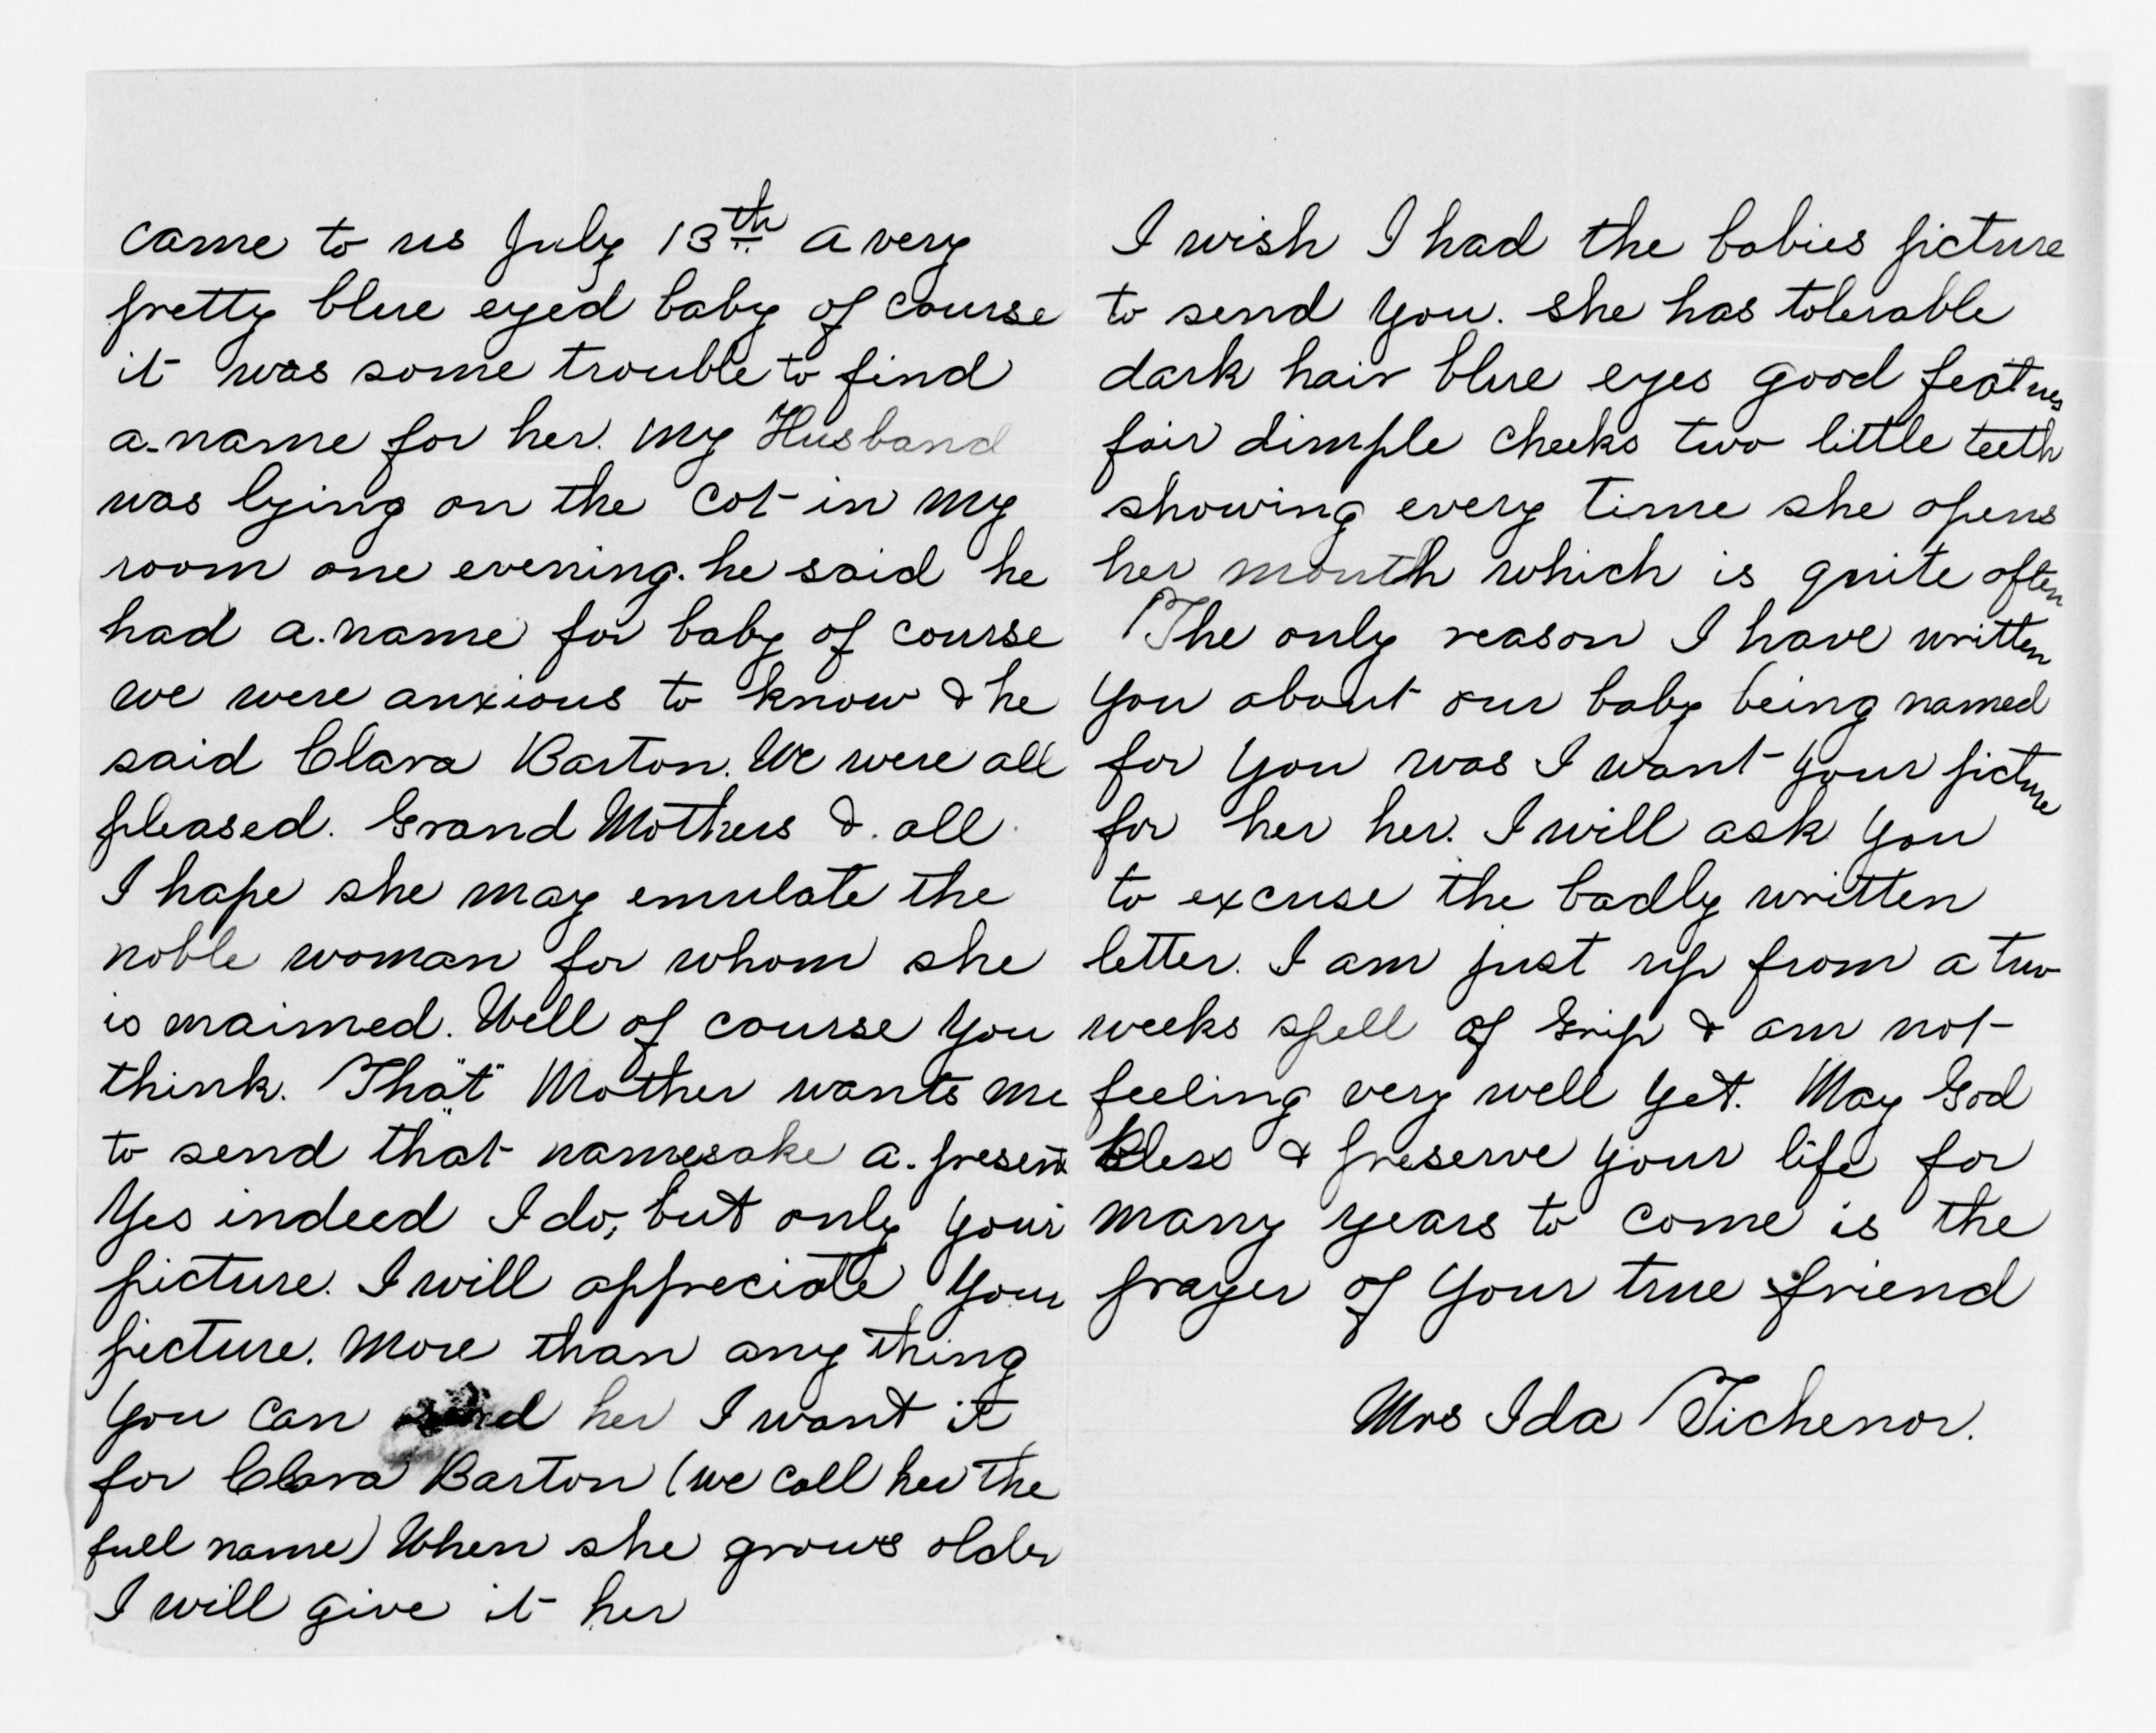 came to us July 13th a very
pretty blue eyed baby of course
it was some trouble to find
a. name for her. My Husband
was lying on the cot in my
room one evening. he said he
had a. name for baby of course
we were anxious to know & he
said Clara Barton. We were all
pleased. Grand Mothers &. all
I hope she may emulate the
noble woman for whom she
is maimed. Well of course you
think. "That" Mother wants me
to send that namesake a. present
Yes indeed I do, but only your
picture. I will appreciate your
picture. More than any thing
you can send her I want it
for Clara Barton (we call her the
full name) When she grows older
I will give it her
I wish I had the babies picture
to send you. she has tolerable
dark hair blue eyes good features
fair dimple cheeks two little teeth
showing every time she opens
her mouth which is quite often
The only reason I have written
you about our baby being named
for you was I want your picture
for her her. I will ask you
to excuse the badly written
letter. I am just up from a two
weeks spell of Grip & am not
feeling very well yet. May God
Bless & preserve your life for
many years to come is the
prayer of your true friend
Mrs Ida Tichenor.